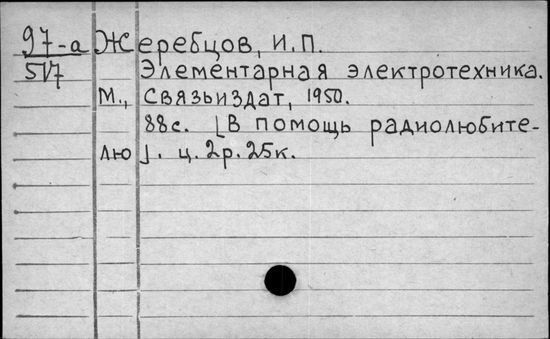 97-а Жеребцов, И.П.
517 Элементарная электротехника.
М., Связьиздат, 1950.
88с. [В помощь радиолюбите-
лю]. ц. 2р. 25к.